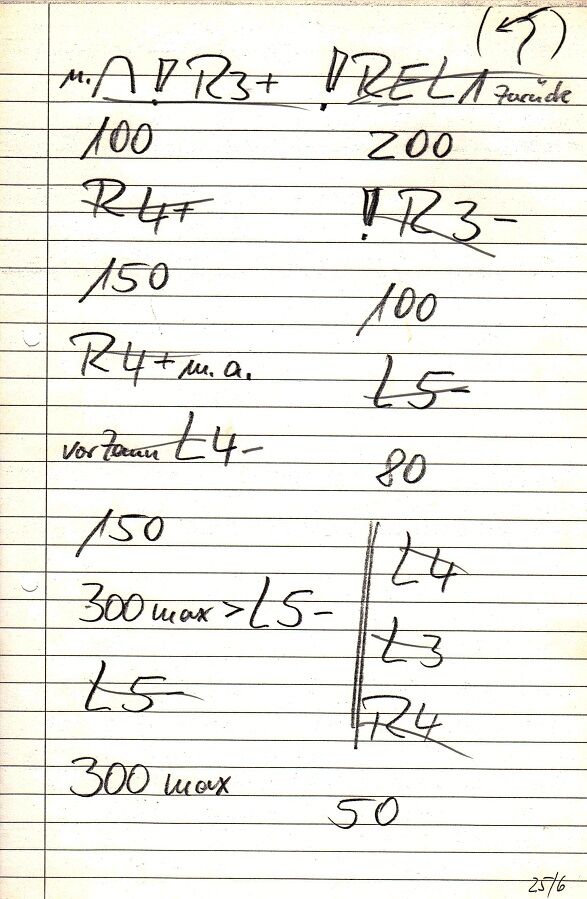 m. ⋂ ! R3+
100
R4+
150
R4+ m.a.
vor Zaun L4-
150
300 max > L5-
L5-
300 max
! REL1 zurück
200
! R3-
100
L5-
80
L4
L3
R4
50
25/6